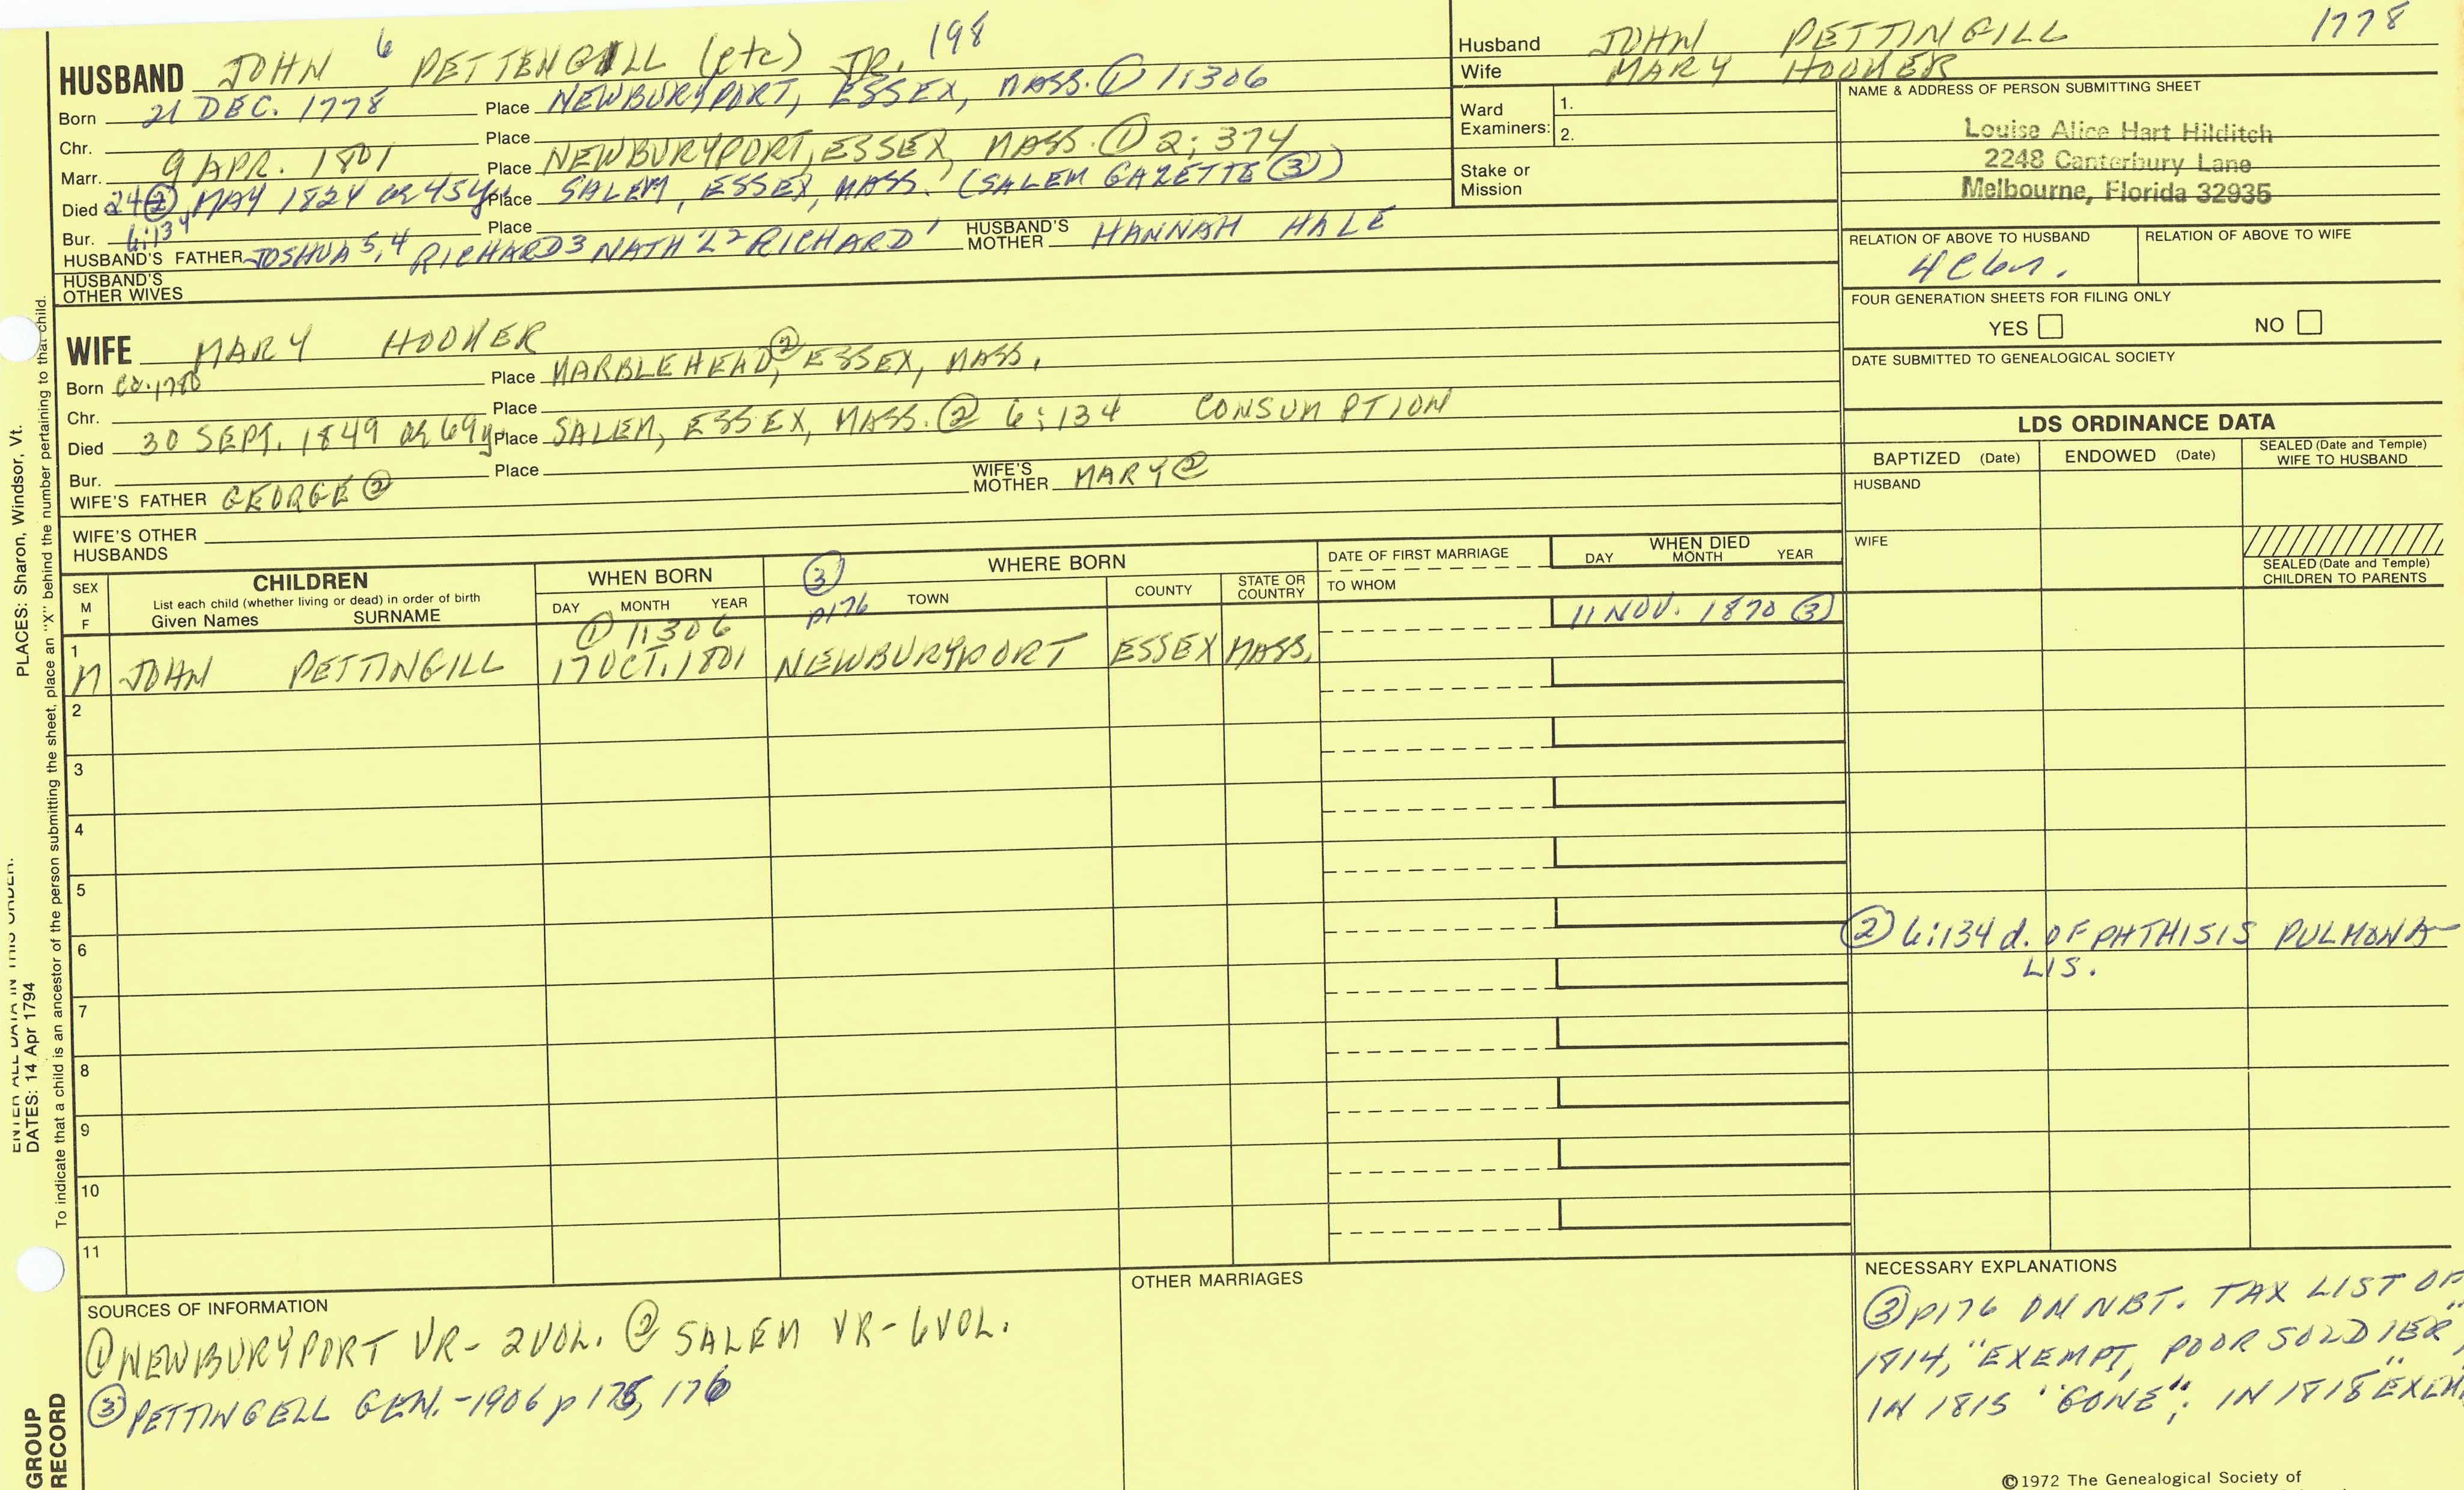 HUSBAND JOHN 6 PETTENGILL (etc) JR. 198
Born 21 DEC. 1778 Place NEWBURYPORT, ESSEX, MASS. ① 1:306
Chr. Place
Marr. 9 APR. 1801 Place NEWBURYPORT, ESSEX, MASS. ① 2:374
Died 24②, MAY 1824 Place SALEM, ESSEX, MASS. (SALEM GAZETTE ③)
Bur. 6:134 Place
HUSBAND'S FATHER JOSHUA 5,4 RICHARD 3 NATH'L 2 RICHARD ' HUSBAND'S MOTHER HANNAH HALE
HUSBAND'S
OTHER WIVES
Husband JOHN PETTINGILL 1778
Wife MARY
Ward
Examiners: 1.
2.
Stake or
Mission
NAME & ADDRESS OF PERSON SUBMITTING SHEET
Louise Alice Hart Hilditch
2248 Canterbury Lane
Melbourne, Florida 32935
RELATION OF ABOVE TO HUSBAND RELATION OF ABOVE TO WIFE
FOUR GENERATION SHEETS FOR FILING ONLY
YES NO
DATE SUBMITTED TO GENEALOGICAL SOCIETY
WIFE MARY
Born ca. 1780 Place MARBLEHEAD,② ESSEX, MASS.
Chr. Place
Died 30 SEPT. 1849 Place SALEM, ESSEX, MASS. ② 6:134 CONSUMPTION
Bur. Place
WIFE'S FATHER GEORGE ② WIFE'S MOTHER MARY ②
WIFE'S OTHER
HUSBANDS
LDS ORDINANCE DATA
BAPTIZED (Date) ENDOWED (Date) SEALED (Date and Temple)
WIFE TO HUSBAND
HUSBAND
WIFE
SEALED (Date and Temple)
CHILDREN TO PARENTS
SEX
M
F
CHILDREN
List each child (whether living or dead) in order of birth
Given Names SURNAME
WHEN BORN
DAY MONTH YEAR
③ WHERE BORN
p176 TOWN COUNTY STATE OR COUNTRY
DATE OF FIRST MARRIAGE
TO WHOM
WHEN DIED
DAY MONTH YEAR
① 1:306 11 NOV. 1870 ③
1 M JOHN PETTINGILL 17 OCT. 1801 NEWBURYPORT ESSEX MASS.
2
3
4
5
6
② 6:134 d. OF PHTHISIS PULMONA-
LIS.
7
8
9
10
11
SOURCES OF INFORMATION
① NEWBURYPORT VR- 2VOL. ② SALEM VR- 6VOL.
③ PETTINGELL GEN. -1906 p 175, 176
OTHER MARRIAGES
NECESSARY EXPLANATIONS
③ p176 ON NBT. TAX LIST OF
1814, "EXEMPT, POOR SOLDIER",
IN 1815 "GONE"; IN 1818 "EXEM
©1972 The Genealogical Society of
PLACES: Sharon, Windsor, Vt.
ENTER ALL DATA IN THIS ORDER:
DATES: 14 Apr 1794
To indicate that a child is an ancestor of the person submitting the sheet, place an "X" behind the number pertaining to that child.
GROUP
RECORD